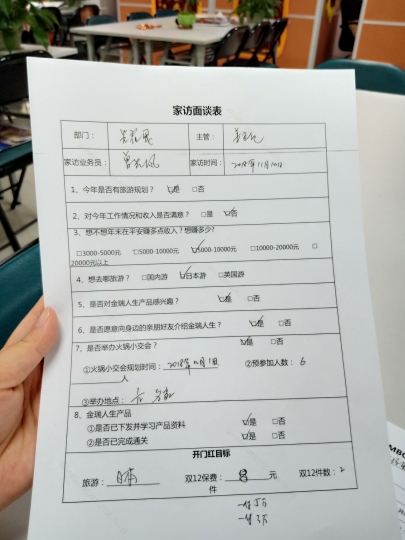 家访面谈表
部门： 主管：
家访业务员： 家访时间： 2018年11月10日
1、今年是否有旅游规划？ ☑是 □否
2、对今年工作情况和收入是否满意？ □是 ☑否
3、想不想年末在平安赚多点收入？想赚多少？
□3000-5000元 □5000-10000元 ☑5000-10000元 □10000-20000元 □
20000元以上
4、想去哪旅游？ □国内游 ☑日本游 □英国游
5、是否对金瑞人生产品感兴趣？ ☑是 □否
6、是否愿意向身边的亲朋好友介绍金瑞人生？ ☑是 □否
7、是否举办火锅小交会？ ☑是 □否
①火锅小交会规划时间： 2018年 ②预参加人数： 6
人
③举办地点：
8、金瑞人生产品
①是否已下发并学习产品资料 ☑是 □否
②是否已完成通关 ☑是 □否
开门红目标
旅游： 日本 双12保费： 8 元 双12件数： 2
件
一件5万
一件3万